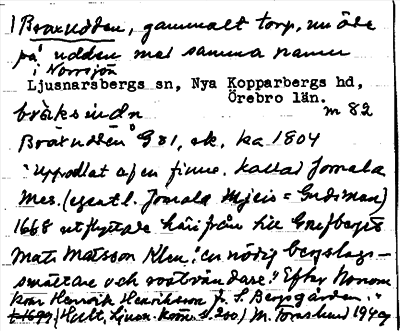 1 Braxudden, gammalt torp, nu öde
på udden med samma namn
i Norrsjön
Ljusnarsbergs sn, Nya Kopparbergs hd,
Örebro län.
m 82
Braxudden G 81, sk. ka 1804
"Uppodlat af en finne. kallad Jomala
Mes. (egentl. Jomala Mjeis = Gudsman)
1668 utflyttade härifrån till
Mats Matsson Klen: "en nödig bergslags-
smältare och rostvändare." Efter honom
kom Henrik Henriksson fr. S. Bergsgården."
(Hult, Ljusn. kom. s. 200) M. 1949